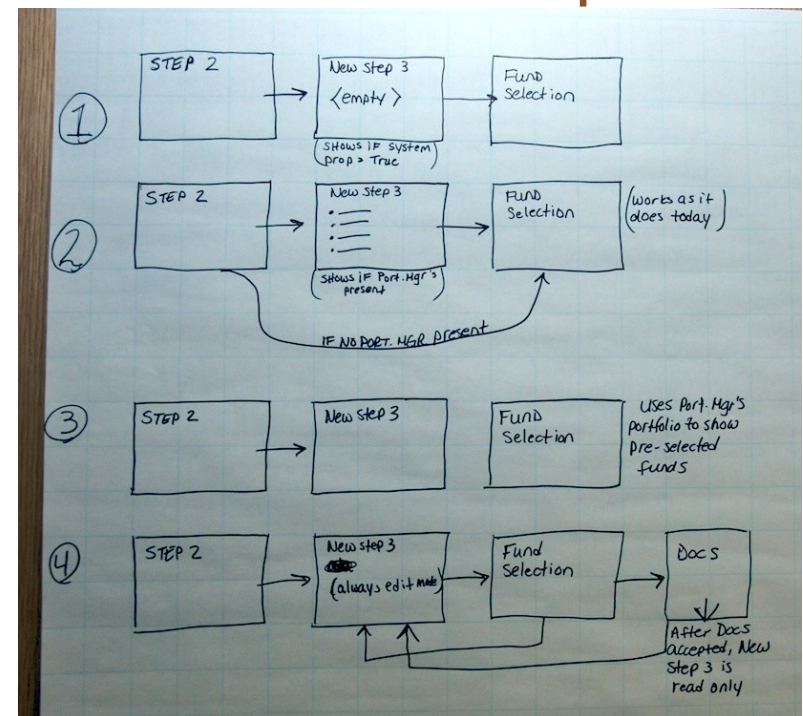 1
STEP 2
New Step 3
<empty>
(SHOWS IF SYSTEM
prop = True)
FUND
Selection
2
STEP 2
New Step 3
(SHOWS IF Port. Mgr's
present)
FUND
Selection
(works as it
does today)
IF NO PORT. MGR present
3
STEP 2
New Step 3
FUND
Selection
Uses Port. Mgr's
portfolio to show
Pre-selected
funds
4
STEP 2
New Step 3
(always edit mode)
Fund
Selection
Docs
After Docs
accepted, New
Step 3 is
read only